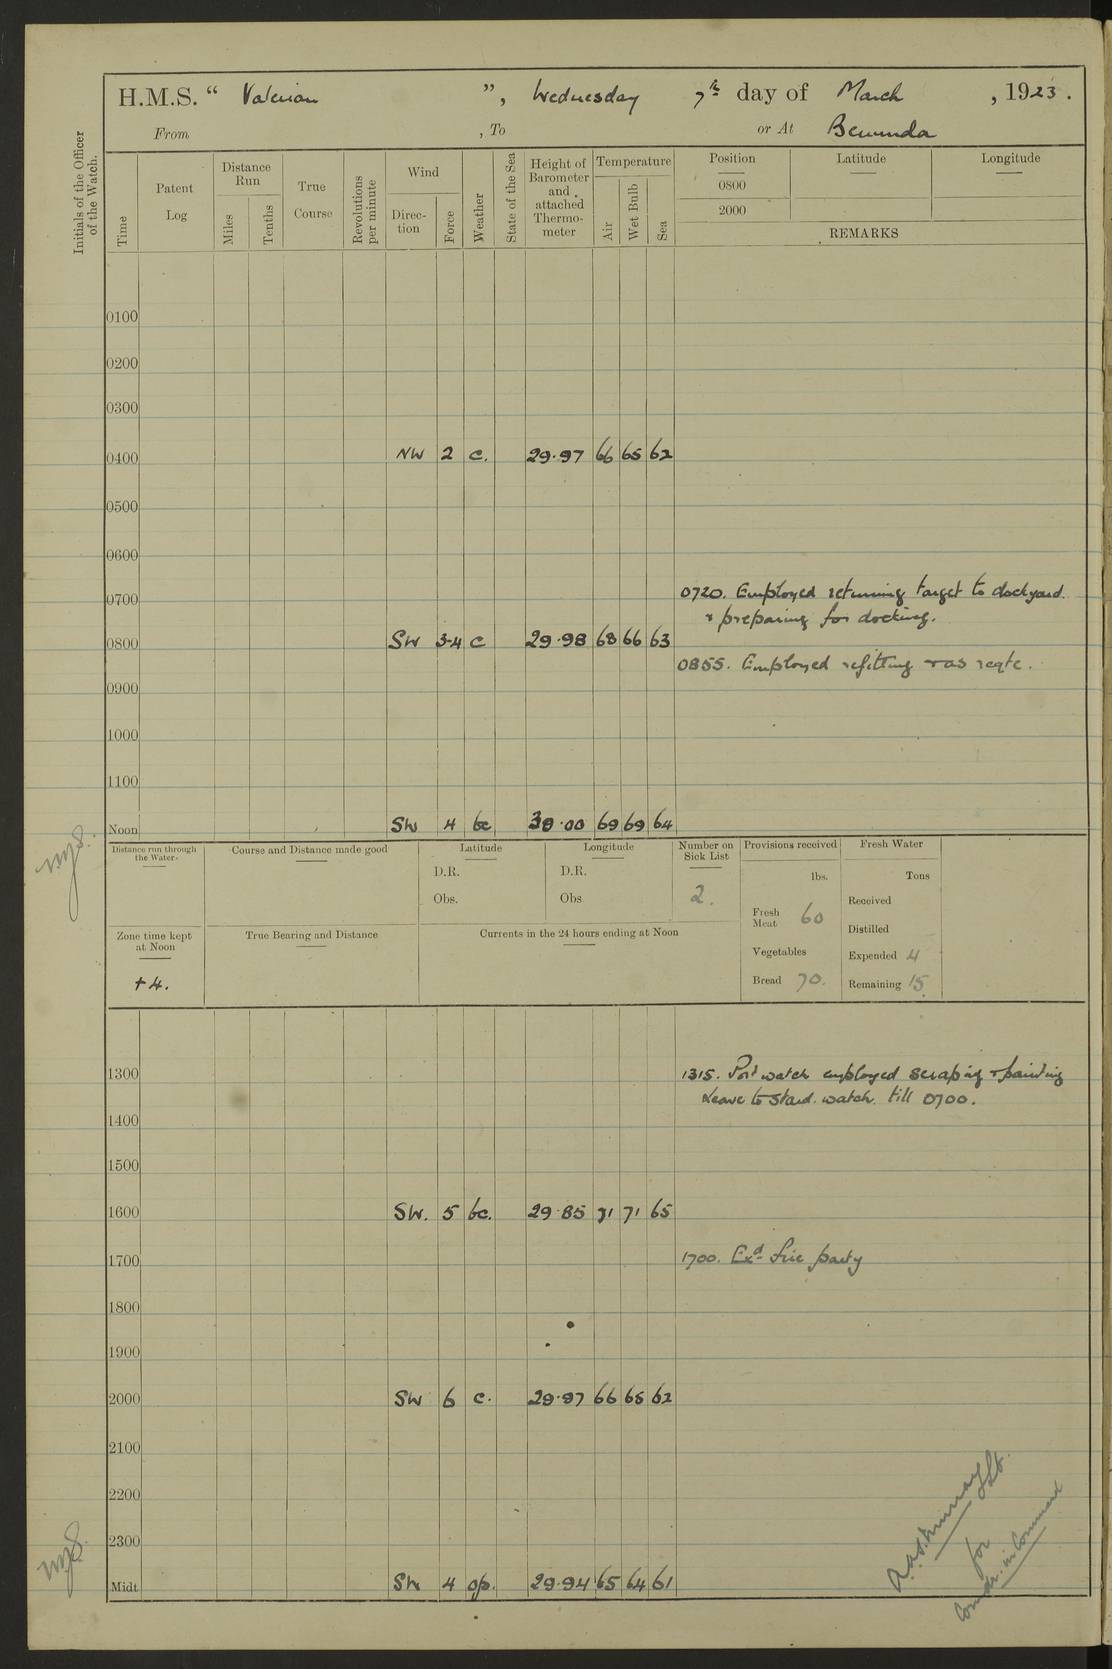 H.M.S. “ Valerian ”, Wednesday 7th day of March , 1923.
From , To or At Bermuda
Initials of the Officer of the Watch.
Time
Patent Log
Distance Run
Miles
Tenths
True Course
Revolutions per minute
Wind
Direction
Force
Weather
State of the Sea
Height of Barometer and attached Thermometer
Temperature
Air
Wet Bulb
Sea
Position Latitude Longitude
0800
2000
REMARKS
0100
0200
0300
0400 NW 2 c. 29.97 66 65 62
0500
0600
0700 0720. Employed returning target to dockyard.
& preparing for docking.
0800 SW 3-4 c 29.98 68 66 63
0855. Employed refitting & as reqte.
0900
1000
1100
Noon SW 4 bc 30.00 69 69 64
Distance run through the Water.
Course and Distance made good
Latitude
D.R.
Obs.
Longitude
D.R.
Obs.
Number on Sick List
2.
Provisions received
lbs.
Fresh Meat 60
Vegetables
Bread 70.
Fresh Water
Tons
Received
Distilled
Expended 4
Remaining 15
Zone time kept at Noon
+4.
True Bearing and Distance
Currents in the 24 hours ending at Noon
1300 1315. Port watch employed scraping & painting
Leave to Starbd. watch till 0700.
1400
1500
1600 SW. 5 bc. 29.85 71 71 65
1700 1700. Exd. fire party
1800
1900
2000 SW 6 c. 29.97 66 65 62
2100
2200
2300
Midt. SW 4 op. 29.94 65 64 61
Lt.
for
Comdr. in Command